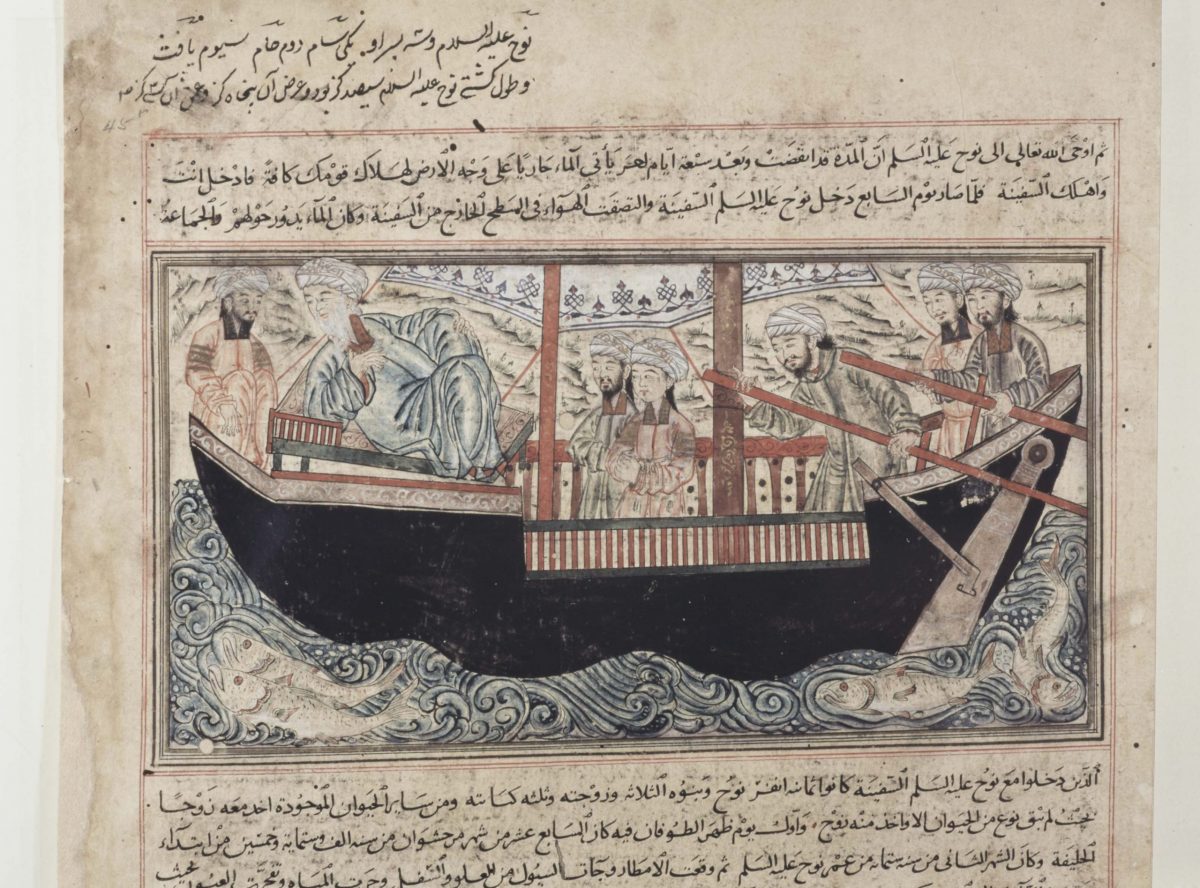 نوح علیه السلام وسه پسر او یکی سام دوم حام سیوم یافت
و طول کشتی نوح علیه السلم سیصد کز بود و عرض آن پنجاه کز و عمق آن سی کز
ثم اوحى الله تعالى الى نوح عليه السلم ان المدة قد انقضت وبعد سبعة ايام اخر يأتي الماء جاريا على وجه الارض لهلاك قومك كافة فادخل انت
واهلك السفينة فلما صار يوم السابع دخل نوح عليه السلم السفينة والتصقت الهواء فى السطح الخارج من السفينة وكان الماء يدور حولهم والجماعة
الذين دخلوا مع نوح عليه السلم السفينة كانوا ثمانية انفر نوح وبنوه الثلاثه وزوجته وثلثه كناته ومن ساير الحيوان الموجودة اخذ معه زوجا
بحيث لم يبق نوع من الحيوان الا واخذ منه زوج واول يوم ظهر الطوفان فيه كان السابع عشر من شهر مرحشوان من سنه الف وستماية وخمسين من ابتداء
الخليقة وكان الشهر الثانى من سنة ستماية من عمر نوح عليه السلم ثم وقعت الامطار وجآت السيول من العلو والسفل وجرت المياه وتفجرت العيون بحيث